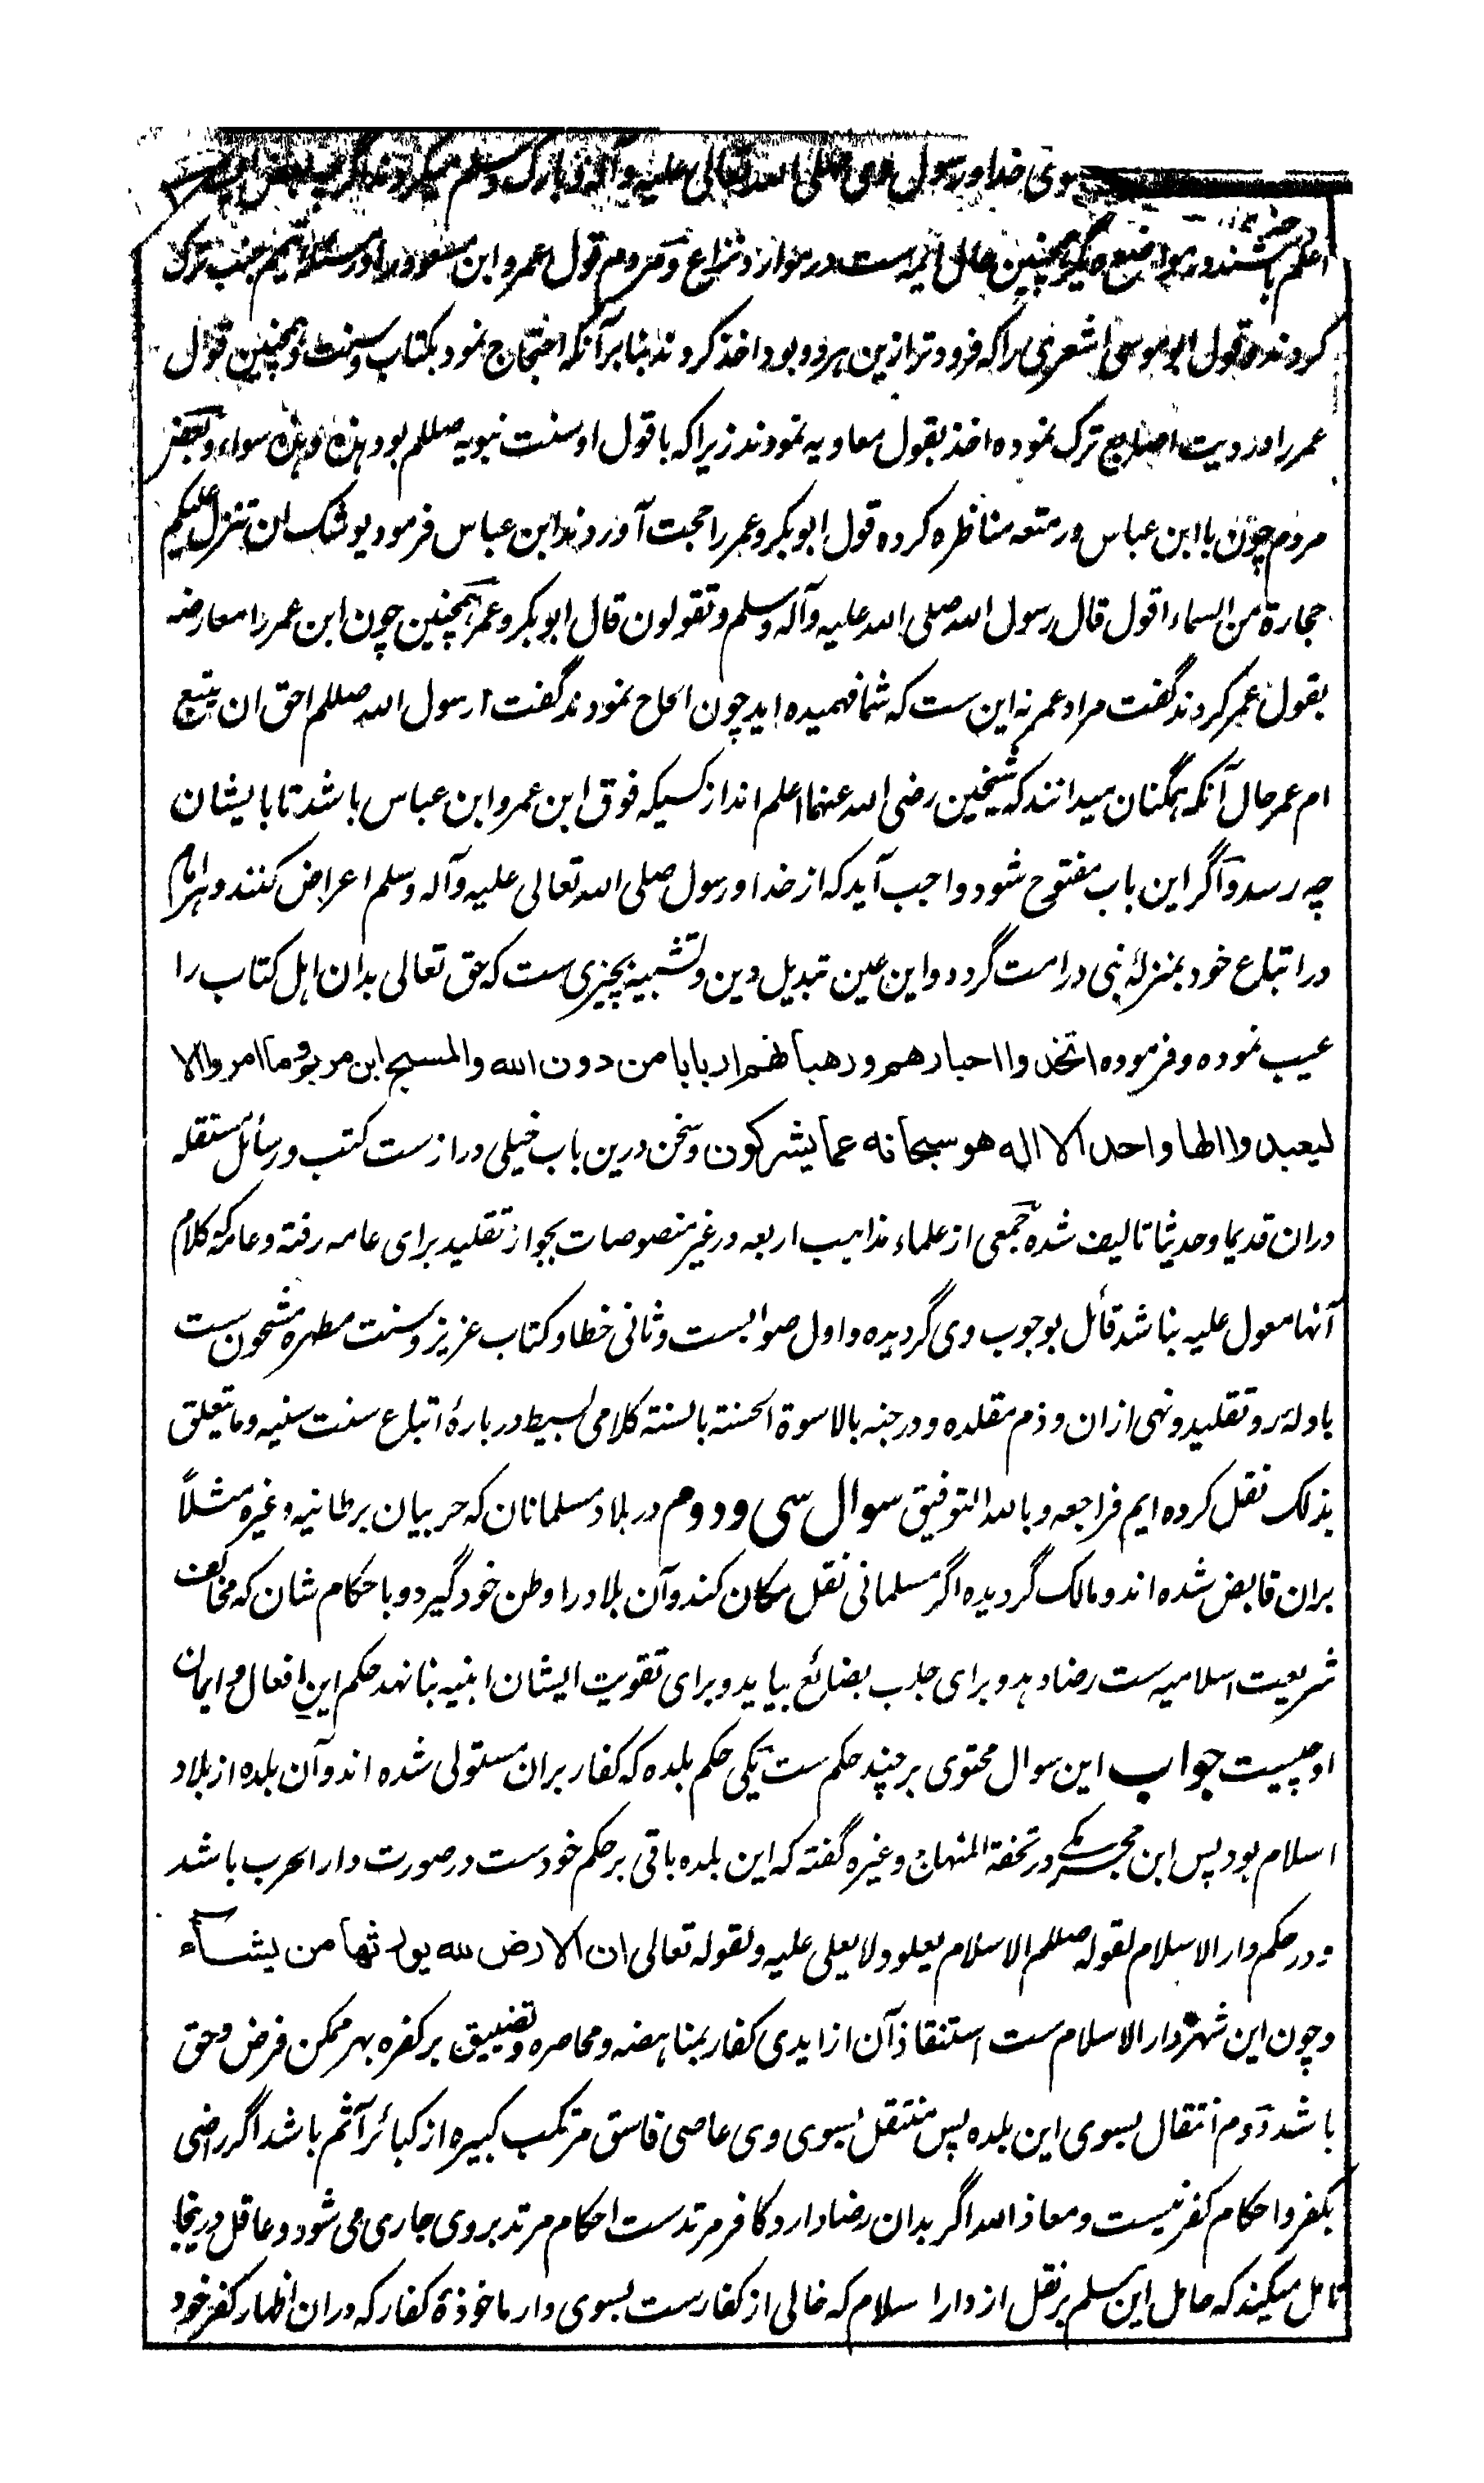 سوی خدا و رسول وی صلی الله تعالی علیه وآله وبارک وسلم میکردند اگرچه بعض
اعلم باشند در مواضع دیگر همچنین حال ائمه است در موارد نزاع و مردم قول عمر و ابن مسعود را در مسئله تیمم جنب ترک
کردند و قول ابو موسی اشعری را که فرودتر ازین هر دو بود اخذ کردند بنا بر آنکه احتجاج نمود بکتاب وسنت و همچنین قول
عمر را در دیت اصابع ترک نموده اخذ بقول معاویه نمودند زیرا که با قول او سنت نبویه صللم بود هذه وهذه سواء و بعض
مردم چون با ابن عباس در متعه مناظره کرده قول ابوبکر و عمر را حجت آوردند ابن عباس فرمود یوشک ان تنزل علیکم
حجارة من السماء اقول قال رسول الله صلی الله علیه وآله وسلم وتقولون قال ابوبکر وعمر همچنین چون ابن عمر را معارضه
بقول عمر کردند گفت مراد عمر نه این ست که شما فهمیده اید چون الحاح نمودند گفت ارسول الله صللم احق ان یتبع
ام عمر حال آنکه همگنان میدانند که شیخین رضی الله عنهما اعلم اند از کسیکه فوق ابن عمر و ابن عباس باشد تا بایشان
چه رسد و اگر این باب مفتوح شود واجب آید که از خدا و رسول صلی الله تعالی علیه وآله وسلم اعراض کنند و هر امام
در اتباع خود بمنزلهٔ نبی در امت گردد و این عین تبدیل دین و تشبیه بچیزی ست که حق تعالی بدان اهل کتاب را
عیب نموده و فرموده اتخذوا احبارهم ورهبانهم اربابا من دون الله والمسیح ابن مریم وما امروا الا
لیعبدوا الها واحدا لا اله الا هو سبحانه عما یشرکون و سخن درین باب خیلی دراز ست کتب و رسائل مستقله
دران قدیما وحدیثا تالیف شده جمعی از علماء مذاهب اربعه در غیر منصوصات بجواز تقلید برای عامه رفته و عامهٔ که کلام
آنها معول علیه نباشد قائل بوجوب وی گردیده و اول صوابست و ثانی خطا و کتاب عزیز و سنت مطهره مشحون ست
بادلهٔ رد تقلید و نهی ازان و ذم مقلده و در جنه بالاسوة الحسنة بالسنة کلامی بسیط در بارهٔ اتباع سنت سنیه وما یتعلق
بذلک نقل کرده ایم فراجعه وبالله التوفیق سوال سی و دوم در بلاد مسلمانان که حربیان برطانیه و غیره مثلاً
بران قابض شده اند و مالک گردیده اگر مسلمانی نقل مکان کند و آن بلاد را وطن خود گیرد و باحکام شان که مخالف
شریعت اسلامیه ست رضا دهد و برای جلب بضائع بیاید و برای تقویت ایشان ابنیه بنا نهد حکم این افعال و ایمان
او چیست جواب این سوال محتوی بر چند حکم ست یکی حکم بلده که کفار بران مستولی شده اند و آن بلده از بلاد
اسلام بود پس ابن حجر مکی در تحفة المنهاج وغیره گفته که این بلده باقی بر حکم خود ست در صورت دار الحرب باشد
و در حکم دار الاسلام لقوله صللم الاسلام یعلو ولا یعلی علیه ولقوله تعالی ان الارض لله یورثها من یشاء
و چون این شهر دار الاسلام ست استنقاذ آن از ایدی کفار بمناهضه و محاصره و تضییق بر کفره بهر ممکن فرض و حق
باشد دوم انتقال بسوی این بلده پس منتقل بسوی وی عاصی فاسق مرتکب کبیره از کبائر آثم باشد اگر راضی
بکفر و احکام کفر نیست و معاذ الله اگر بدان رضا دارد کافر مرتد ست احکام مرتد بروی جاری می شود و عاقل درینجا
تامل میکند که حامل این مسلم بر نقل از دار اسلام که خالی از کفار ست بسوی دار ماخوذهٔ کفار که دران اظهار کفر خود